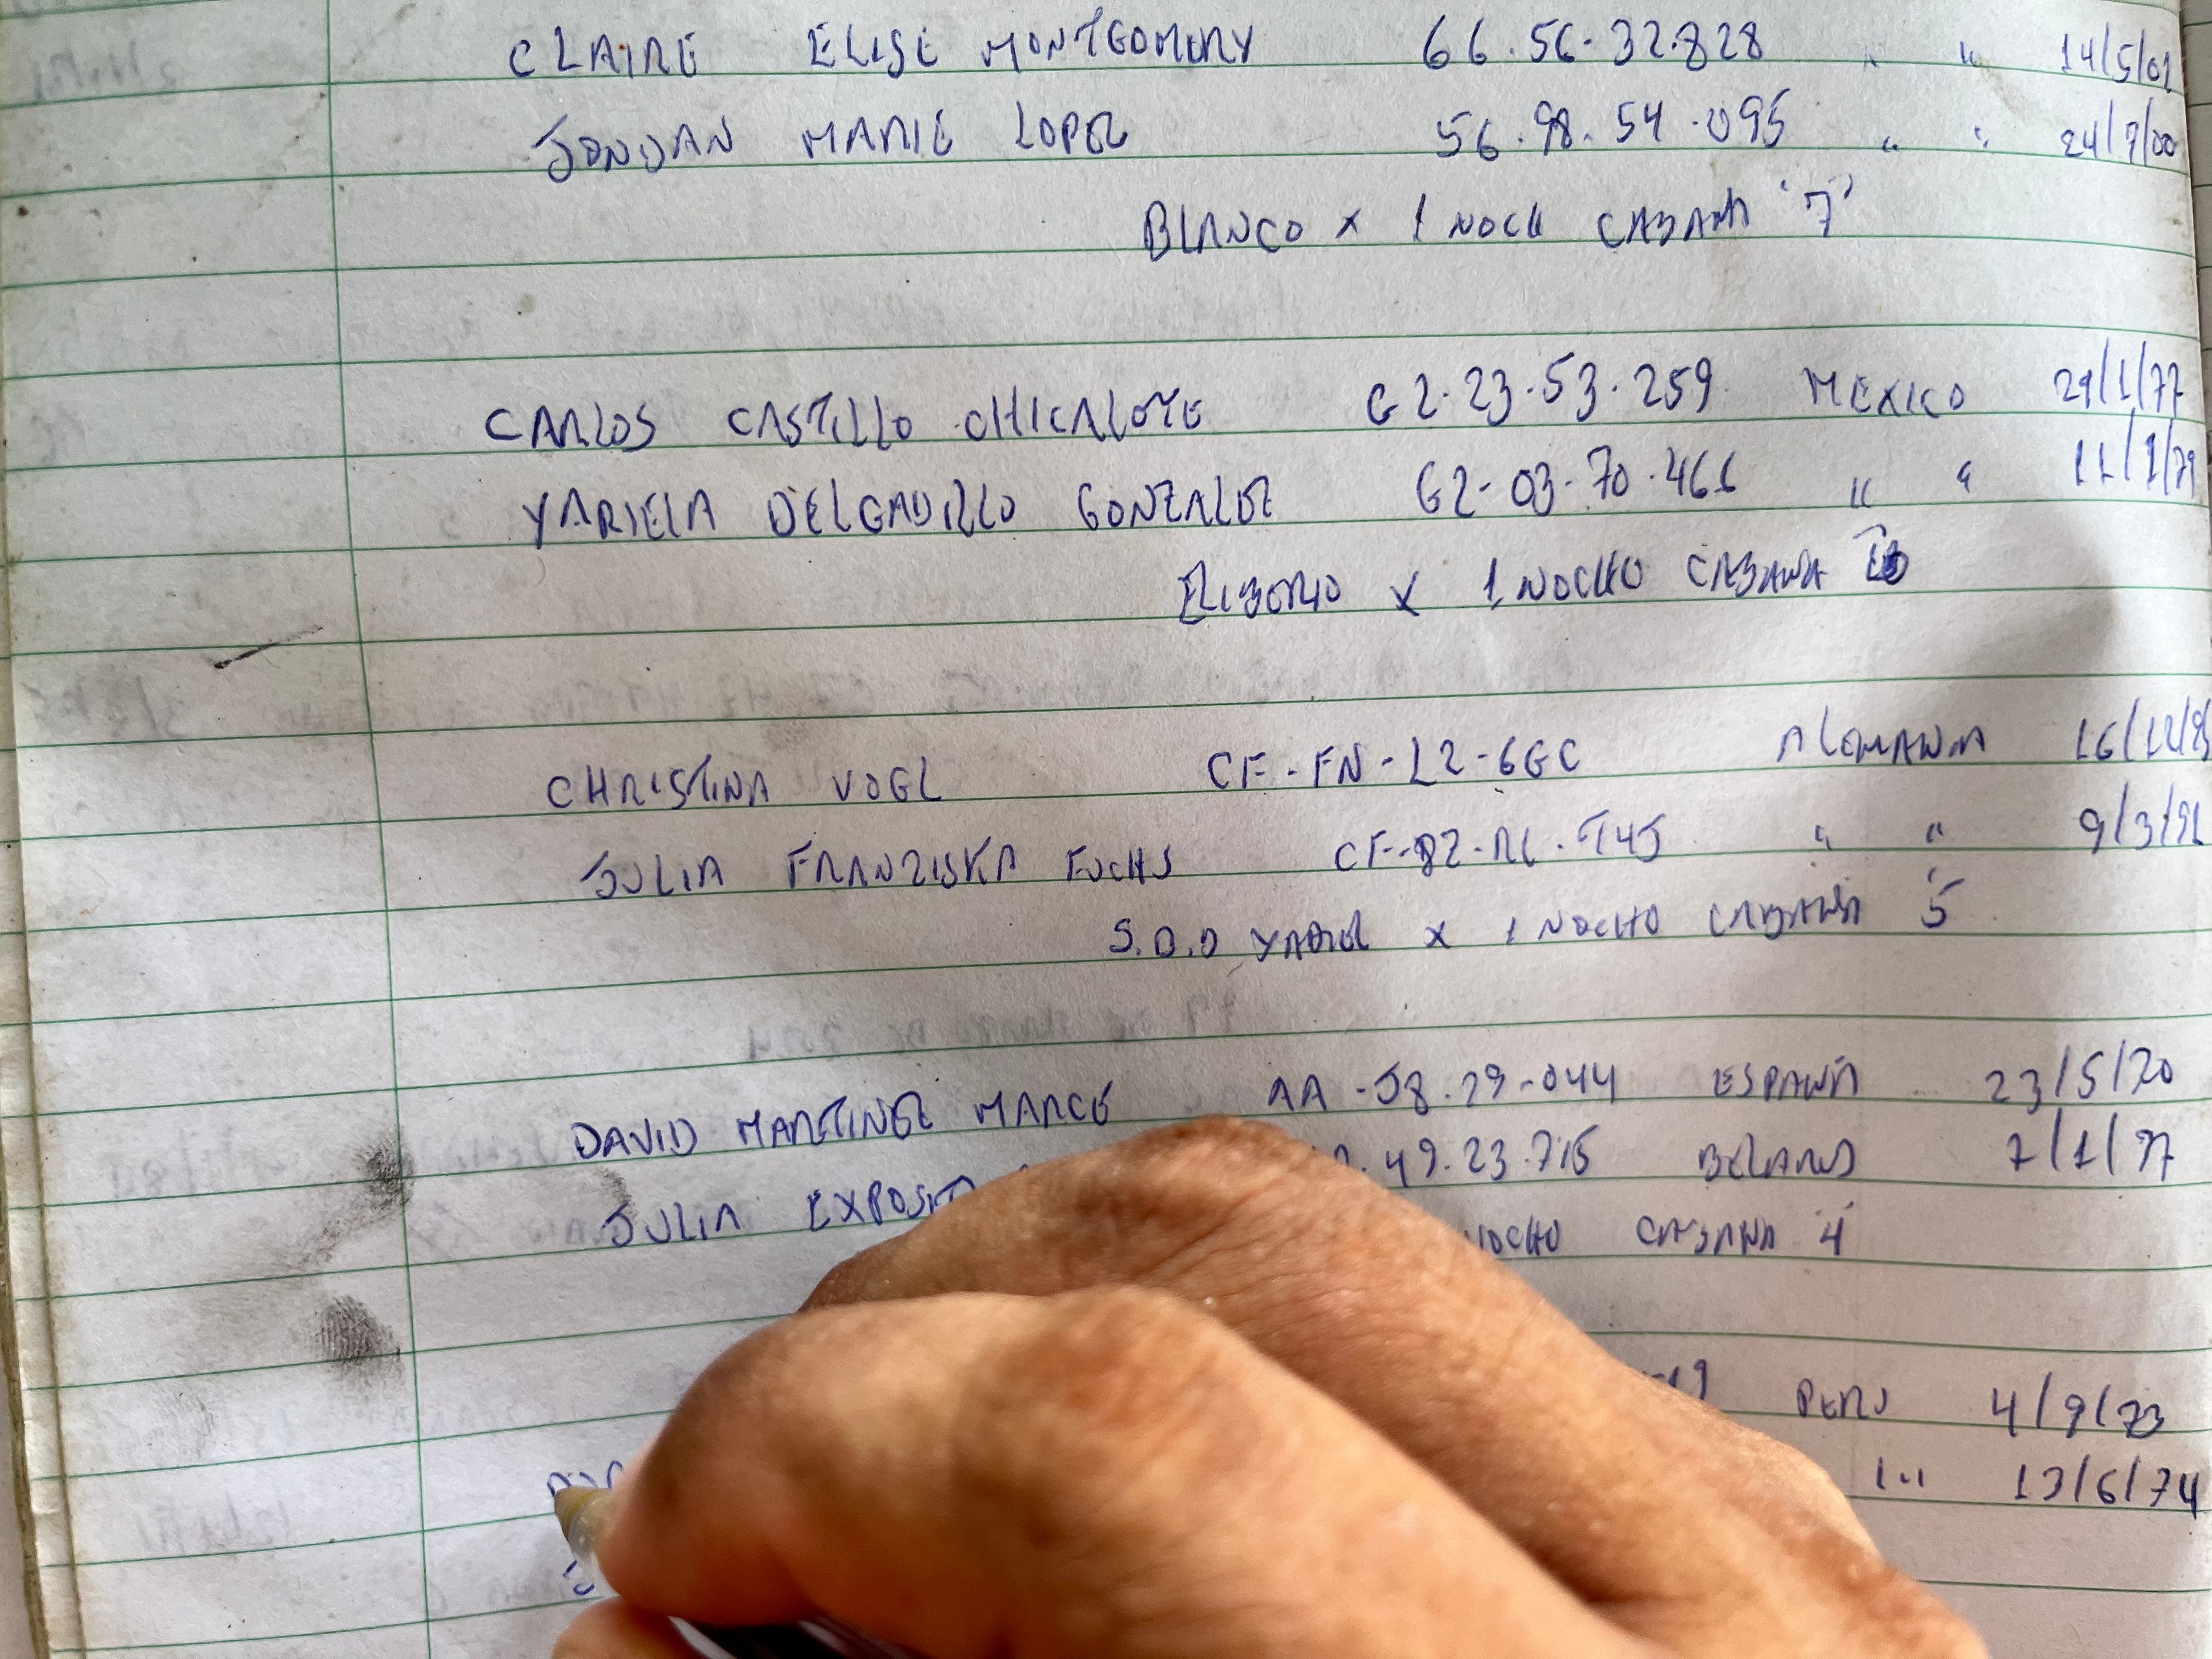 CLAIRE ELISE MONTGOMERY 66.56.32.828 " " 14/5/01
JORDAN MARIE LOPEZ 56.98.54.095 " " 24/7/00
BLANCO x 1 NOCH CABAÑA '7'
CARLOS CASTILLO CHICALOTE G2.23.53.259 MEXICO 29/1/77
YARIELA DELGADILLO GONZALEZ G2-03-70.466 " " 11/1/79
ELIBERIO x 1 NOCHE CABAÑA
CHRISTINA VOGL CF-FN-L2-6GC ALEMANIA 16/12/
JULIA FRANZISKA FUCHS " " 9/3/
S.O.D YADIEL x 1 NOCHE CABAÑA 5
DAVID MARTINEZ MARCE AA-J8.29-044 ESPAÑA 23/5/
JULIA .49.23.715 BELARUS 7/1/97
NOCHE CABAÑA 4
PERU 4/9/73
13/6/74